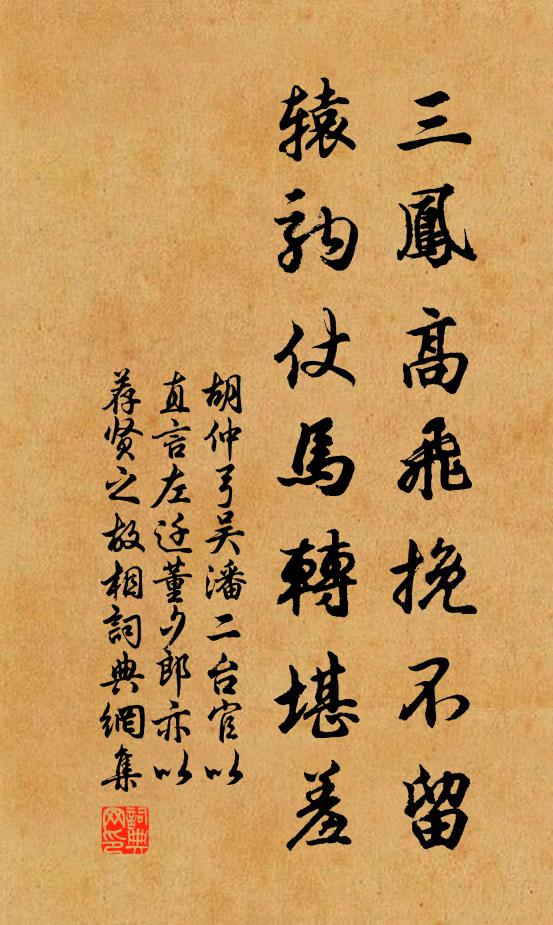 三鳳高飛挽不留
辕駒仗馬轉堪羞
胡仲弓吴潘二台官以
直言左迁董夕郎亦以
荐贤之故相詞典網集
詞典网印